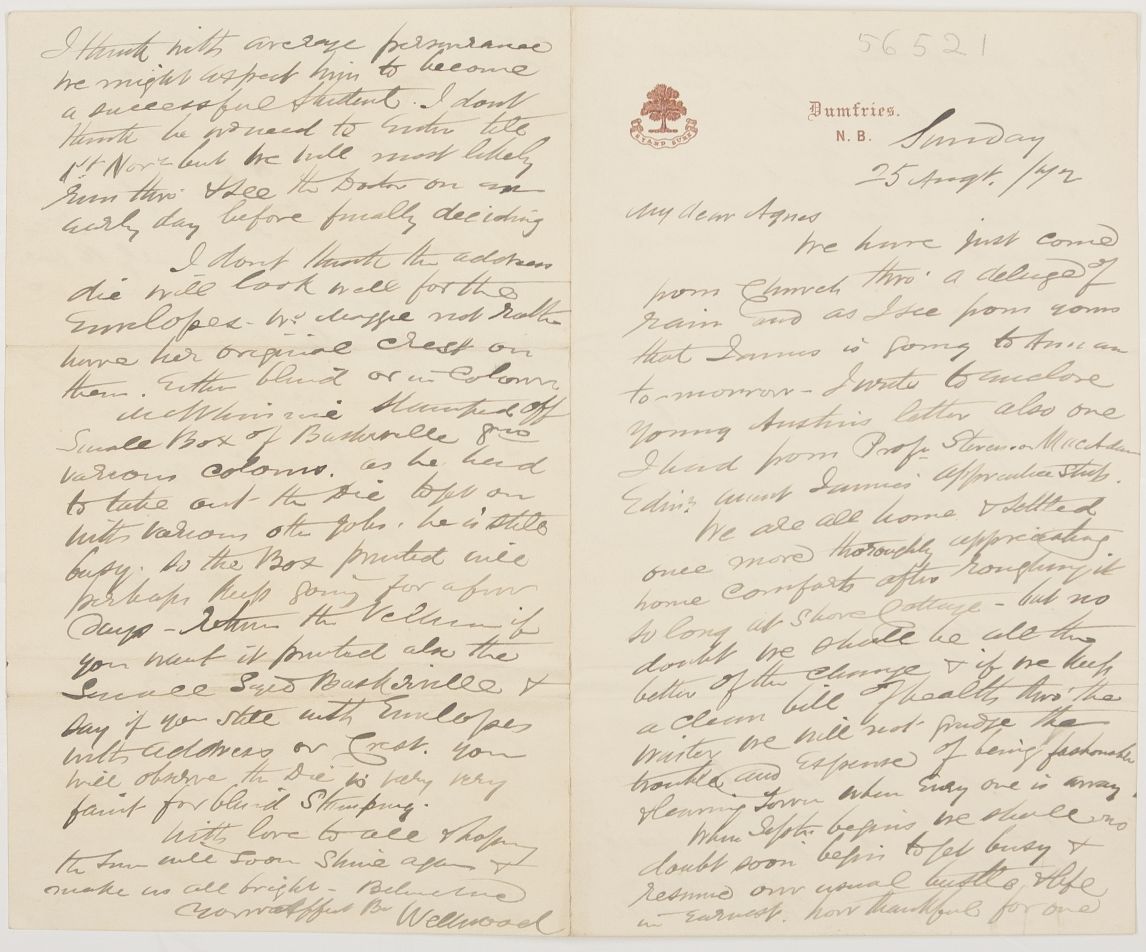 56521
STAND SURE
Dumfries.
N. B.
Sunday
25 Augt. /72
My dear Agnes
We have just come
from Church thro' a deluge of
rain and as I see from yours
that James is going to Annan
to-morrow - I write to enclose
young Austins letter also one
I had from Profr. Stevenson MacAdam
Edinr. anent Jamies apprenticeship.
We are all home & settled
once more thoroughly appreciating
home comforts after roughing it
so long at Shore Cottage - but no
doubt we shall be all the
better of the change & if we keep
a clean bill of health thro' the
winter we will not grudge the
trouble and Expense of being fashionable
& leaving Town when Every one is away.
When Septr. begins we shall no
doubt soon begin to get busy &
resume our usual bustle & life
in Earnest. how thankful for one
I think with average perseverance
we might expect him to become
a successful student. I dont
think he need to Enter till
1st Novr. but we will most likely
run thro' & see the Doctor on an
early day before finally deciding
I dont think the address
die will look well for the
Envelopes - wd. Maggie not rather
have her original Crest on
them. Either blind or in Colour
stamped off
Small Box of Baskerville
various colours. as he had
to take out the Die to get on
with various other jobs. he is still
busy. so the Box printed will
perhaps keep going for a few
days - return the Vellum if
you want it printed also the
Small Baskerville &
say if you still with Envelopes
with address or Crest. you
will observe the Die is very very
faint for blind Stamping.
With love to all & hoping
the Sun will soon Shine again &
make us all bright - Believe me
Your Affect Br Wellwood